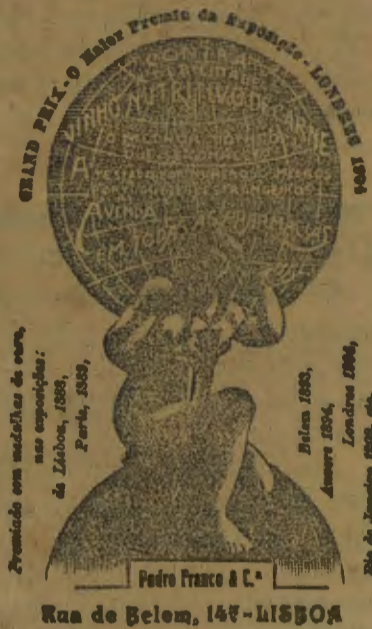 GRAND PRIX - O Maior Premio da Exposição - LONDRES 1904
CONTRA
A DEBILIDADE
VINHO NUTRITIVO DE CARNE
O MELHOR TONICO
QUE SE CONHECE
ATTESTADO POR NUMEROSOS MEDICOS
PORTUGUEZES E ESTRANGEIROS
Á VENDA AS PHARMACIAS
EM TODAS
Premiado com medalhas de ouro,
nas exposições:
de Lisboa, 1888,
Paris, 1889,
Belem 1893,
Anvers 1894,
Londres 1904,
Rio de Janeiro 1908, etc.
Pedro Franco & C.ª
Rua de Belem, 147-LISBOA